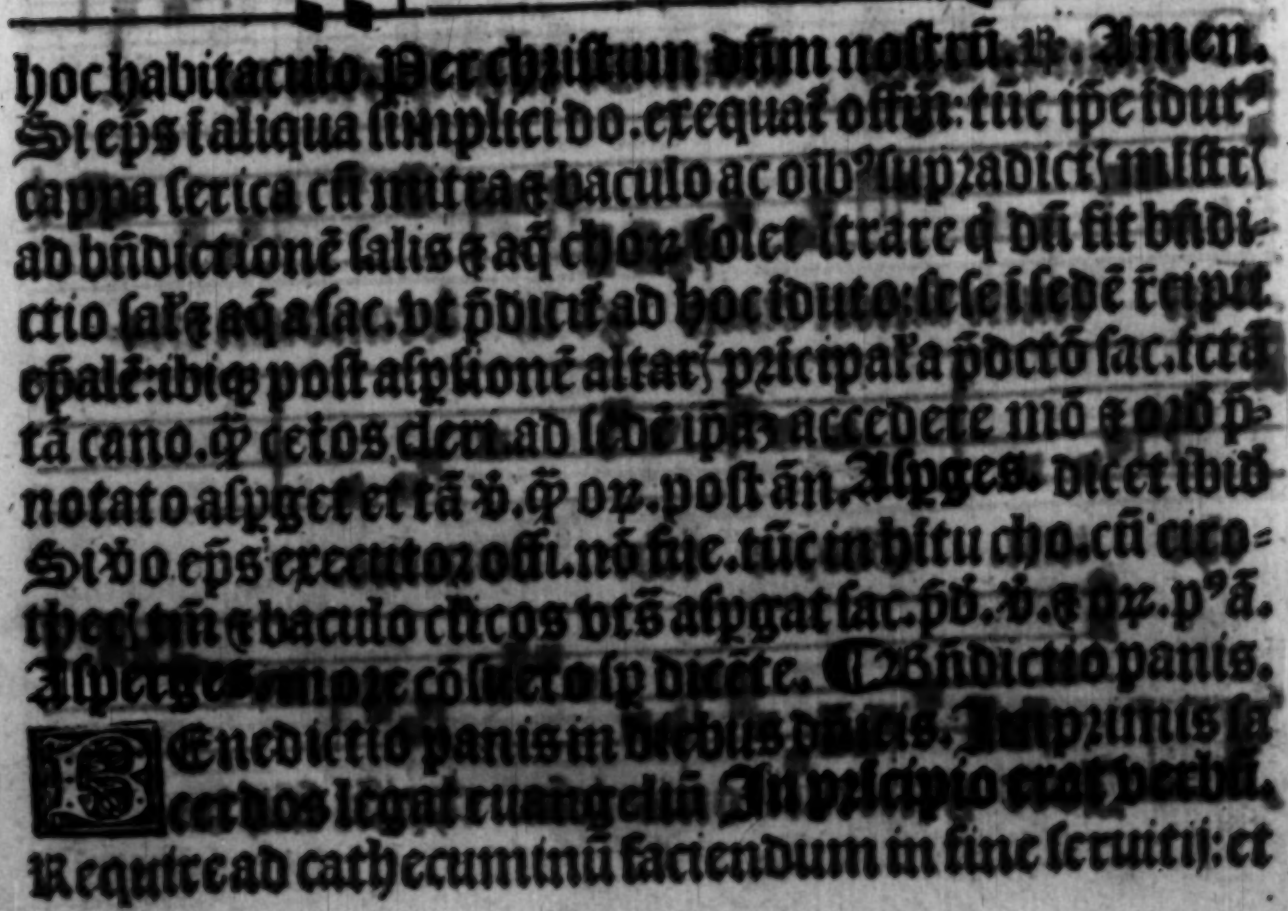 hoc habitaculo. Per christum dñm nostrũ. ℟. Amen.
Si eṕs ĩ aliqua simplici do. exequat᷑ offm̃: tũc ip̃e ĩdutꝰ
cappa serica cũ mitra ⁊ baculo ac oĩbꝰ supradictꝭ mĩstrꝭ
ad bñdictionẽ salis ⁊ aq̃ choꝝ solet ĩtrare q̇ dũ fit bñdi-
ctio sal᷑ ⁊ aq̃ a sac. vt p̃dicit᷑ ad hoc ĩduto: sese ĩ sedẽ r̃cipit
ep̃alẽ: ibiqꝫ post asꝑsionẽ altarꝭ prĩcipal᷑ a p̃dctõ sac. fctã
tã cano. ꝙ̃ cet᷑os cleri. ad sedẽ ip̃aꝫ accedere mõ ⁊ ord̃ p̃-
notato asꝑget et tã v̾. ꝙ̃ oꝝ. post ãn. Asꝑges. dicet ibid̃
Si v̾o eṕs executor offi. nõ fue. tũc in hĩtu cho. cũ ciro-
thecꝭ tm̃ ⁊ baculo cl̃icos vts̃ asꝑgat sac. p̃d̾. v̾. ⁊ oꝝ. pꝰ ã.
Asperges. more cõsueto sꝑ dicẽte. ¶ Bñdictio panis.
BEnedictio panis in diebus dñicis. Imprimis sa
cerdos legat euãgeliũ In prĩcipio erat verbũ.
Require ad cathecuminũ faciendum in fine seruitij: et